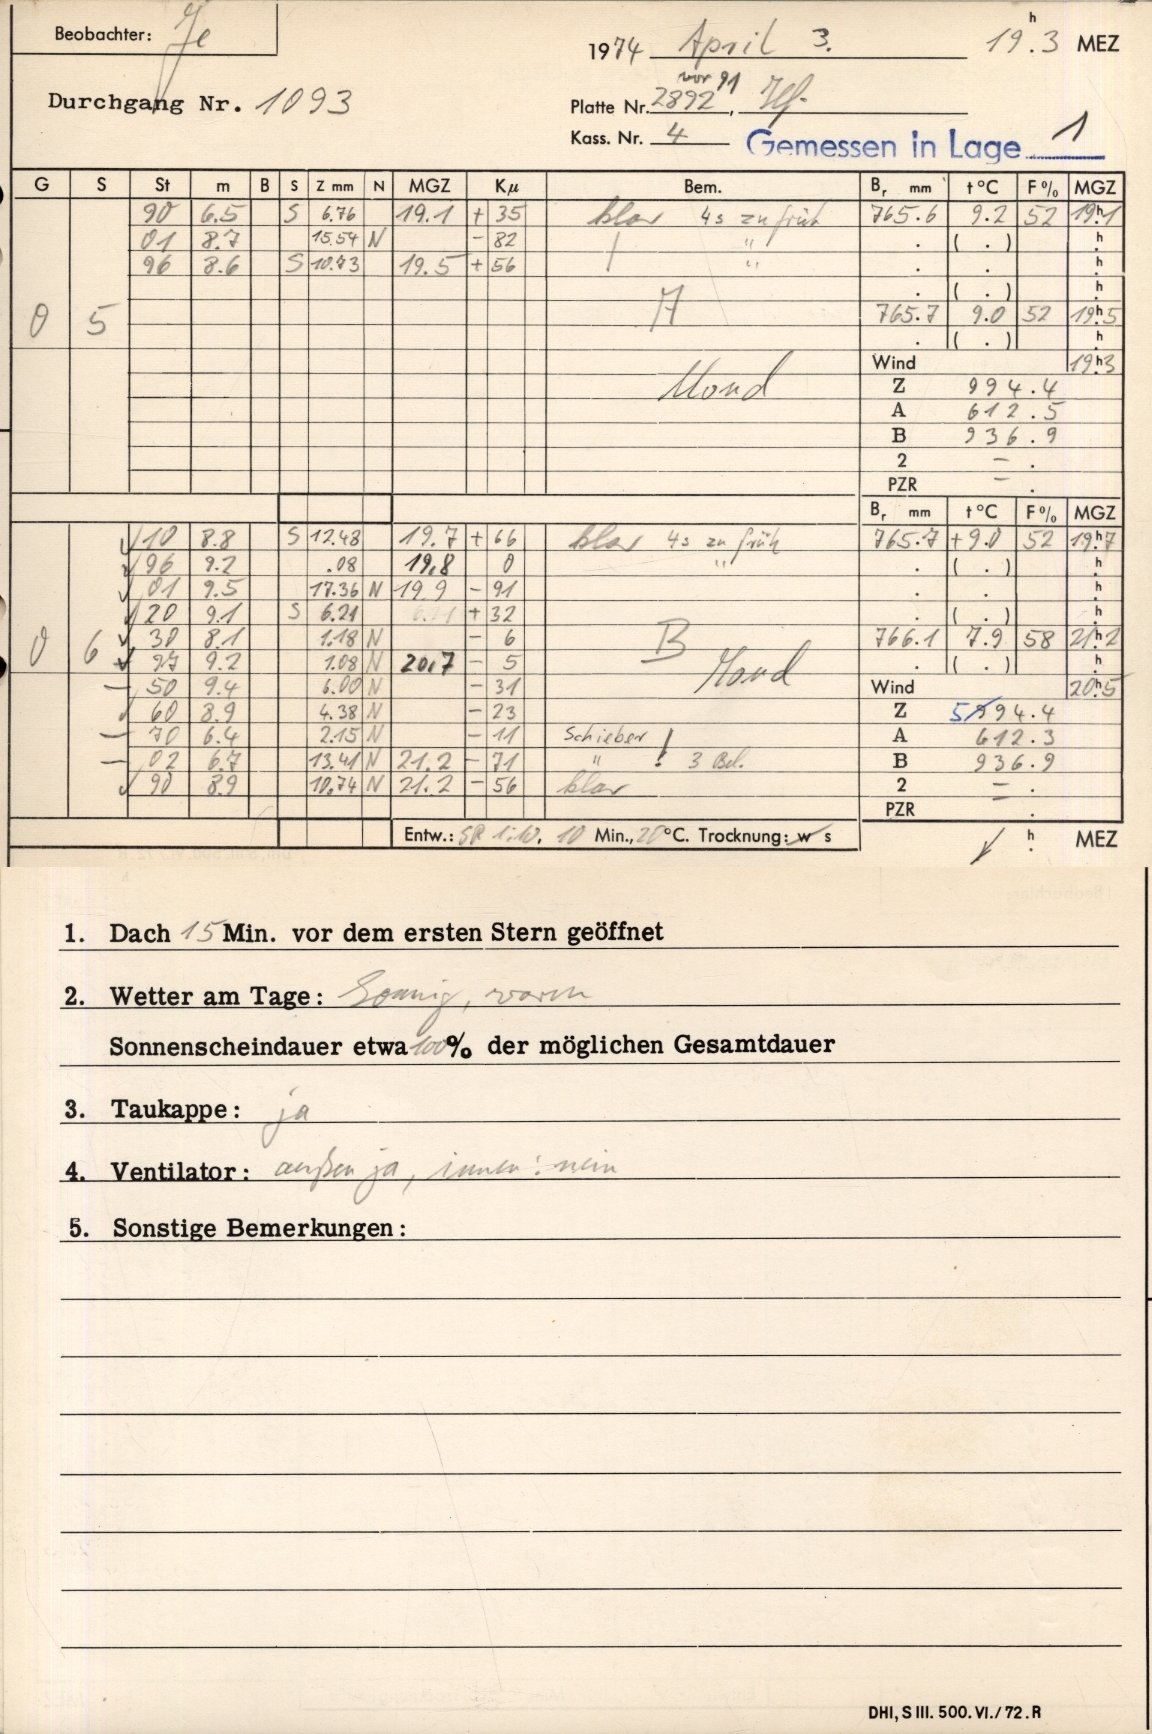 Beobachter: Je
1974 April 3. 19.3 h MEZ
Durchgang Nr. 1093
vor 91
Platte Nr. 2892,
Kass. Nr. 4 Gemessen in Lage 1
G S St m B S Z mm N MGZ Kμ Bem. Br mm t°C F% MGZ
90 6.5 S 6.76 19.1 + 35 klar 4s zu früh 765.6 9.2 52 19h1
01 8.7 15.54 N - 82 " . ( . ) h
96 8.6 S 10.73 19.5 + 56 " . . h
. ( . ) h
0 5 A 765.7 9.0 52 19h5
. ( . ) h
Wind 19h3
Mond Z 994.4
A 612.5
B 936.9
2 - .
PZR - .
Br mm t°C F% MGZ
10 8.8 S 12.48 19.7 + 66 klar 4s zu früh 765.7 +9.0 52 19h7
96 9.2 .08 19,8 0 " . ( . ) h
01 9.5 17.36 N 19.9 - 91 . . h
20 9.1 S 6.21 + 32 . ( . ) h
0 6 30 8.1 1.18 N - 6 B 766.1 7.9 58 21h2
97 9.2 1.08 N 20,7 - 5 Mond . ( . ) h
50 9.4 6.00 N - 31 Wind 20h5
60 8.9 4.38 N - 23 Z 5994.4
70 6.4 2.15 N - 11 Schieber ! A 612.3
02 6.7 13.41 N 21.2 - 71 " 3 Bel. B 936.9
90 8.9 10.74 N 21.2 - 56 klar 2 - .
PZR .
Entw.: 1:10, 10 Min., 20°C. Trocknung: w s h MEZ
1. Dach 15 Min. vor dem ersten Stern geöffnet
2. Wetter am Tage: Sonnig, warm
Sonnenscheindauer etwa 100% der möglichen Gesamtdauer
3. Taukappe: ja
4. Ventilator: außen ja, innen: nein
5. Sonstige Bemerkungen:
DHI, S III. 500. VI./72.R